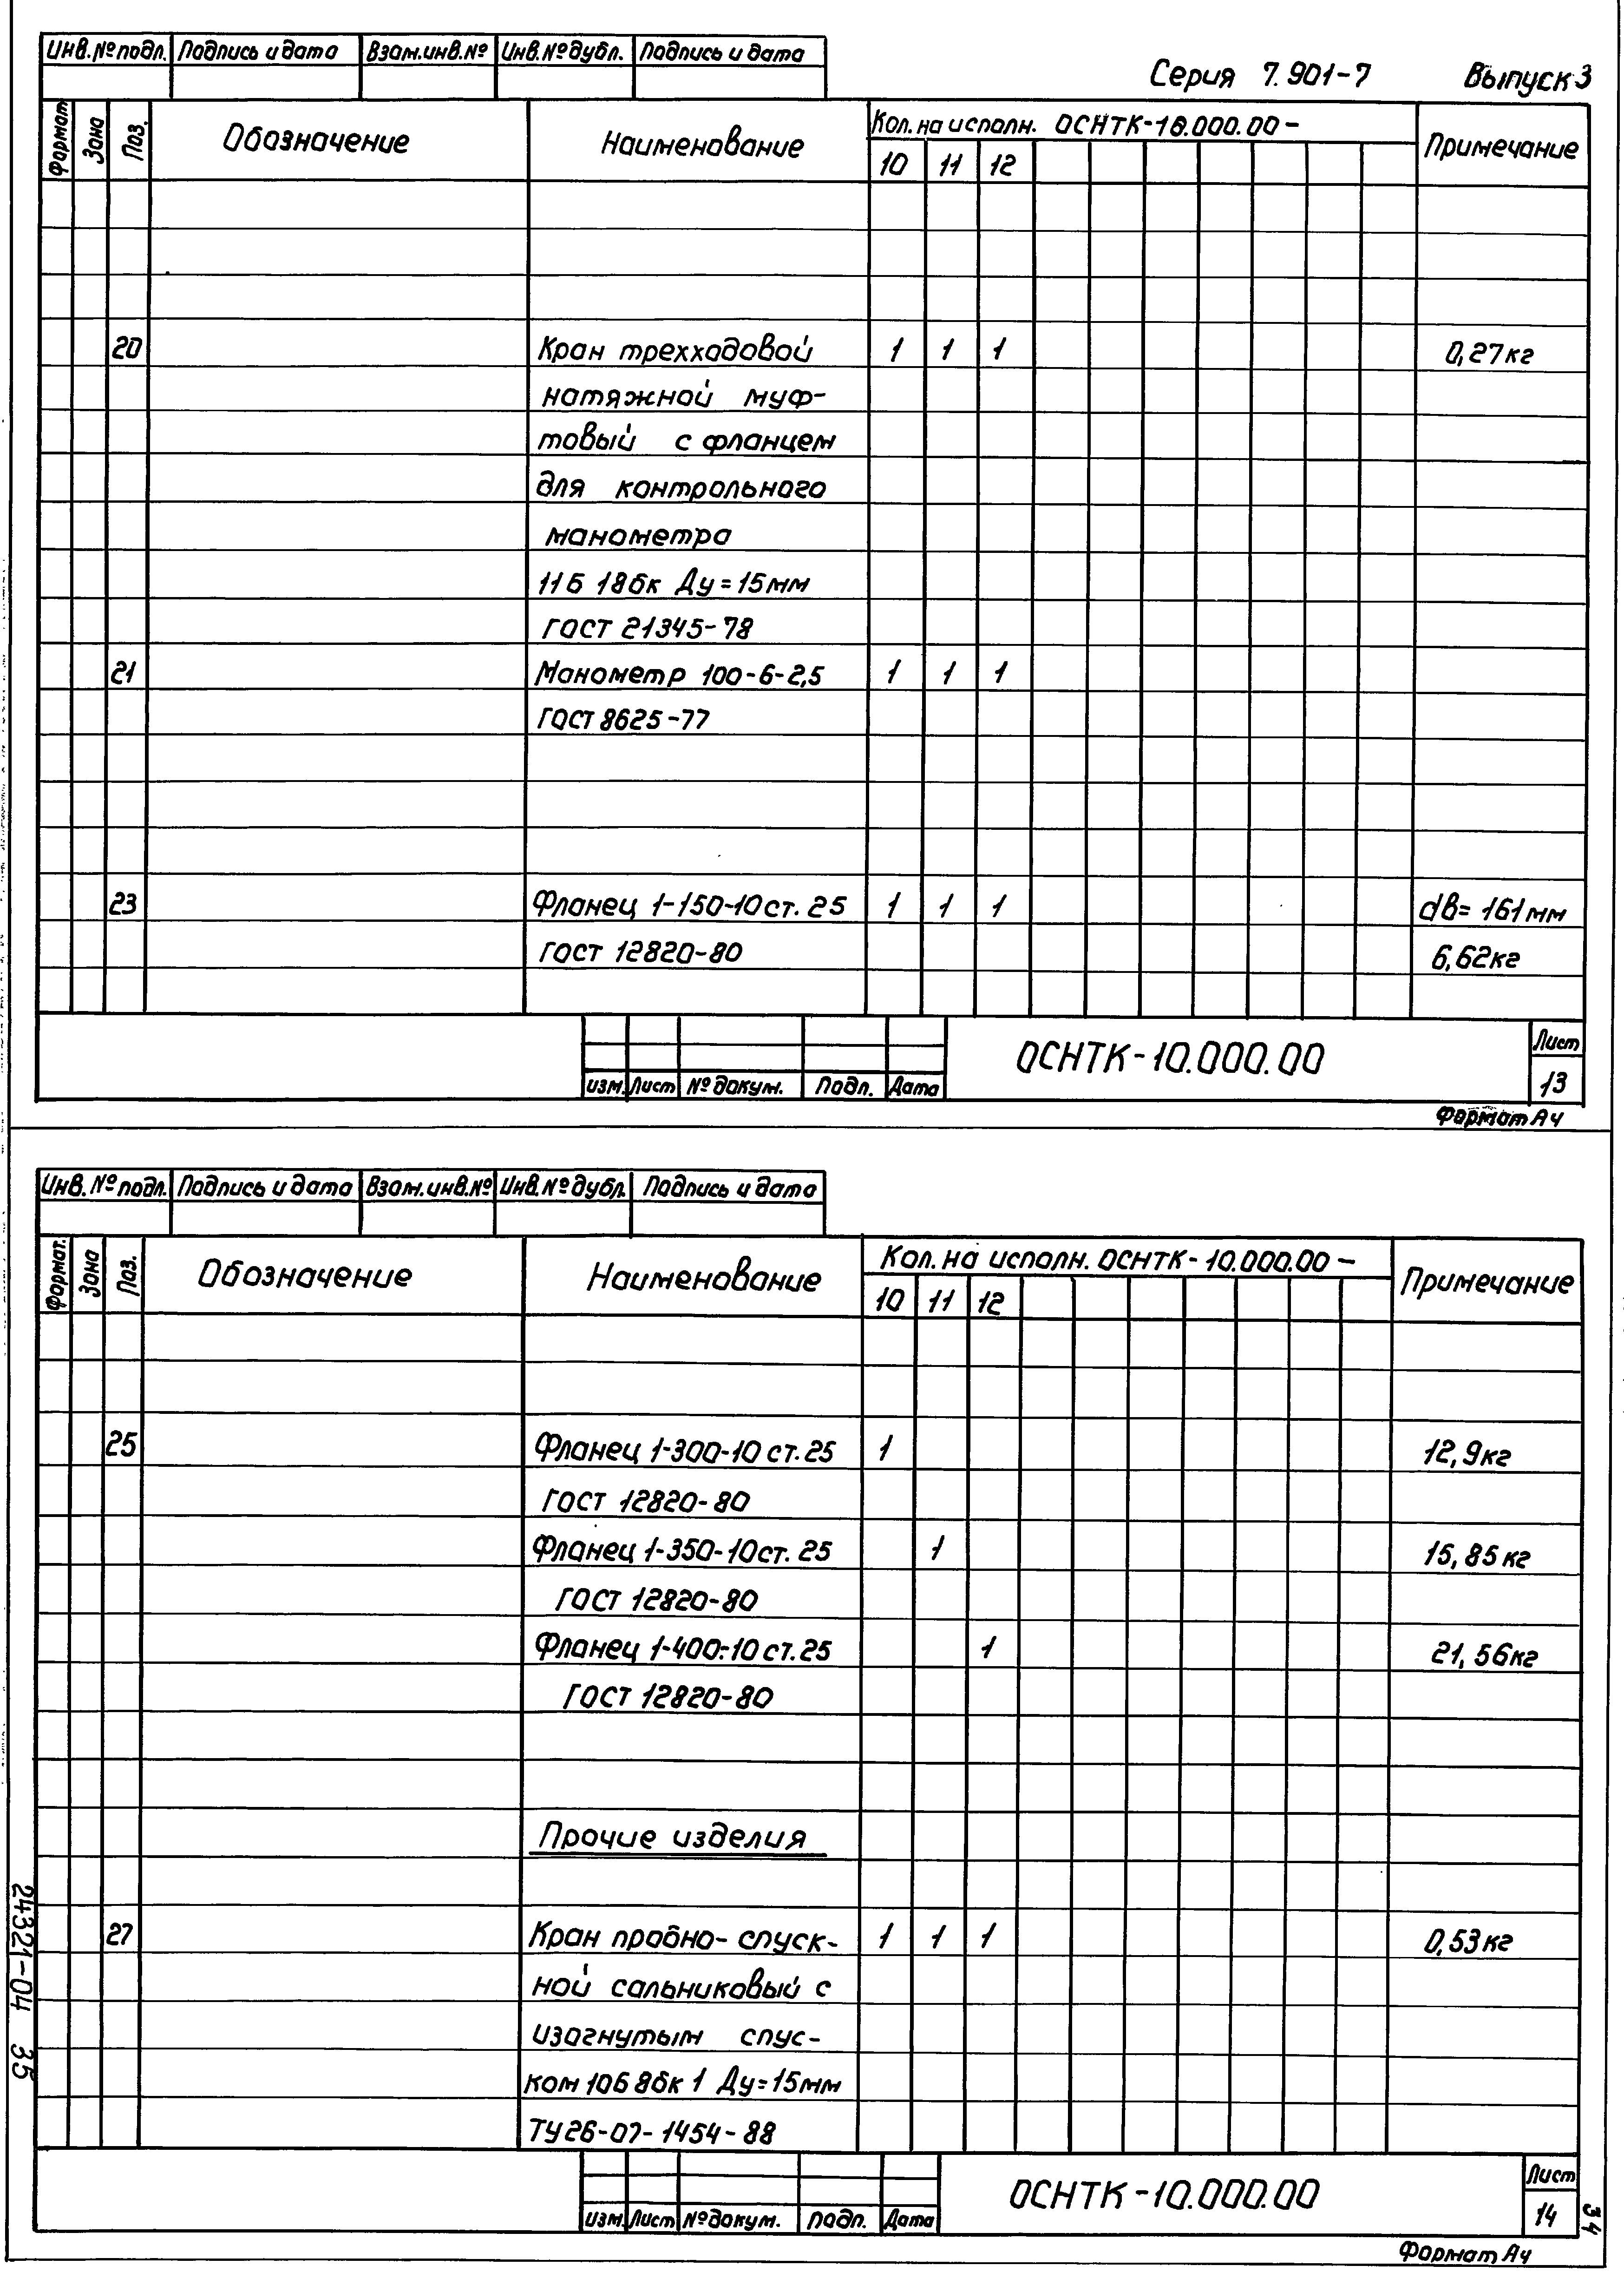 Серия 7.901-7 Выпуск 3
Инв.№ подл. Подпись и дата Взам.инв.№ Инв.№ дубл. Подпись и дата
Формат Зона Поз. Обозначение Наименование Кол. на исполн. ОСНТК-10.000.00- Примечание
10 11 12
20 Кран трехходовой 1 1 1 0,27кг
натяжной муф-
товый с фланцем
для контрольного
манометра
11Б 18бк Ду=15мм
ГОСТ 21345-78
21 Манометр 100-6-2,5 1 1 1
ГОСТ 8625-77
23 Фланец 1-150-10 ст. 25 1 1 1 dв= 161мм
ГОСТ 12820-80 6,62кг
изм. Лист № докум. Подп. Дата
ОСНТК-10.000.00
Лист
13
Формат А4
Инв.№ подл. Подпись и дата Взам.инв.№ Инв.№ дубл. Подпись и дата
Формат. Зона Поз. Обозначение Наименование Кол. на исполн. ОСНТК-10.000.00- Примечание
10 11 12
25 Фланец 1-300-10 ст. 25 1 12,9кг
ГОСТ 12820-80
Фланец 1-350-10 ст. 25 1 15,85кг
ГОСТ 12820-80
Фланец 1-400-10 ст. 25 1 21,56кг
ГОСТ 12820-80
Прочие изделия
27 Кран пробно-спуск- 1 1 1 0,53кг
ной сальниковый с
изогнутым спус-
ком 10Б 8бк 1 Ду=15мм
ТУ26-07-1454-88
изм. Лист № докум. подп. Дата
ОСНТК-10.000.00
Лист
14
Формат А4
24321-04 35
34